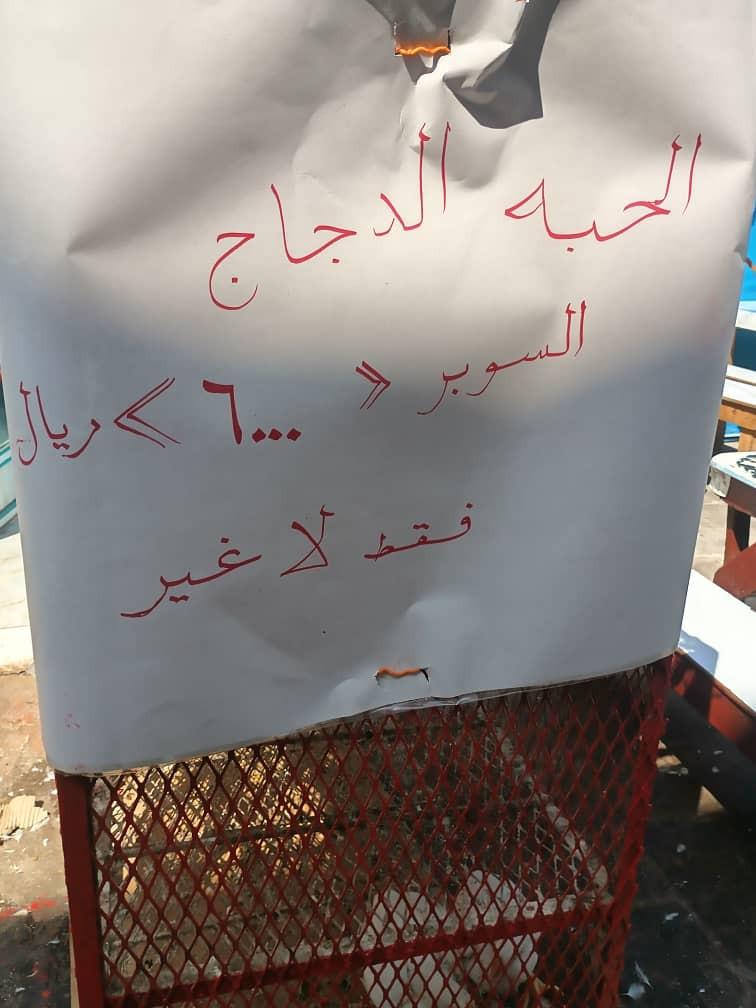 الحبه الدجاج
السوبر « ٦٠٠٠ » ريال
فقط لا غير